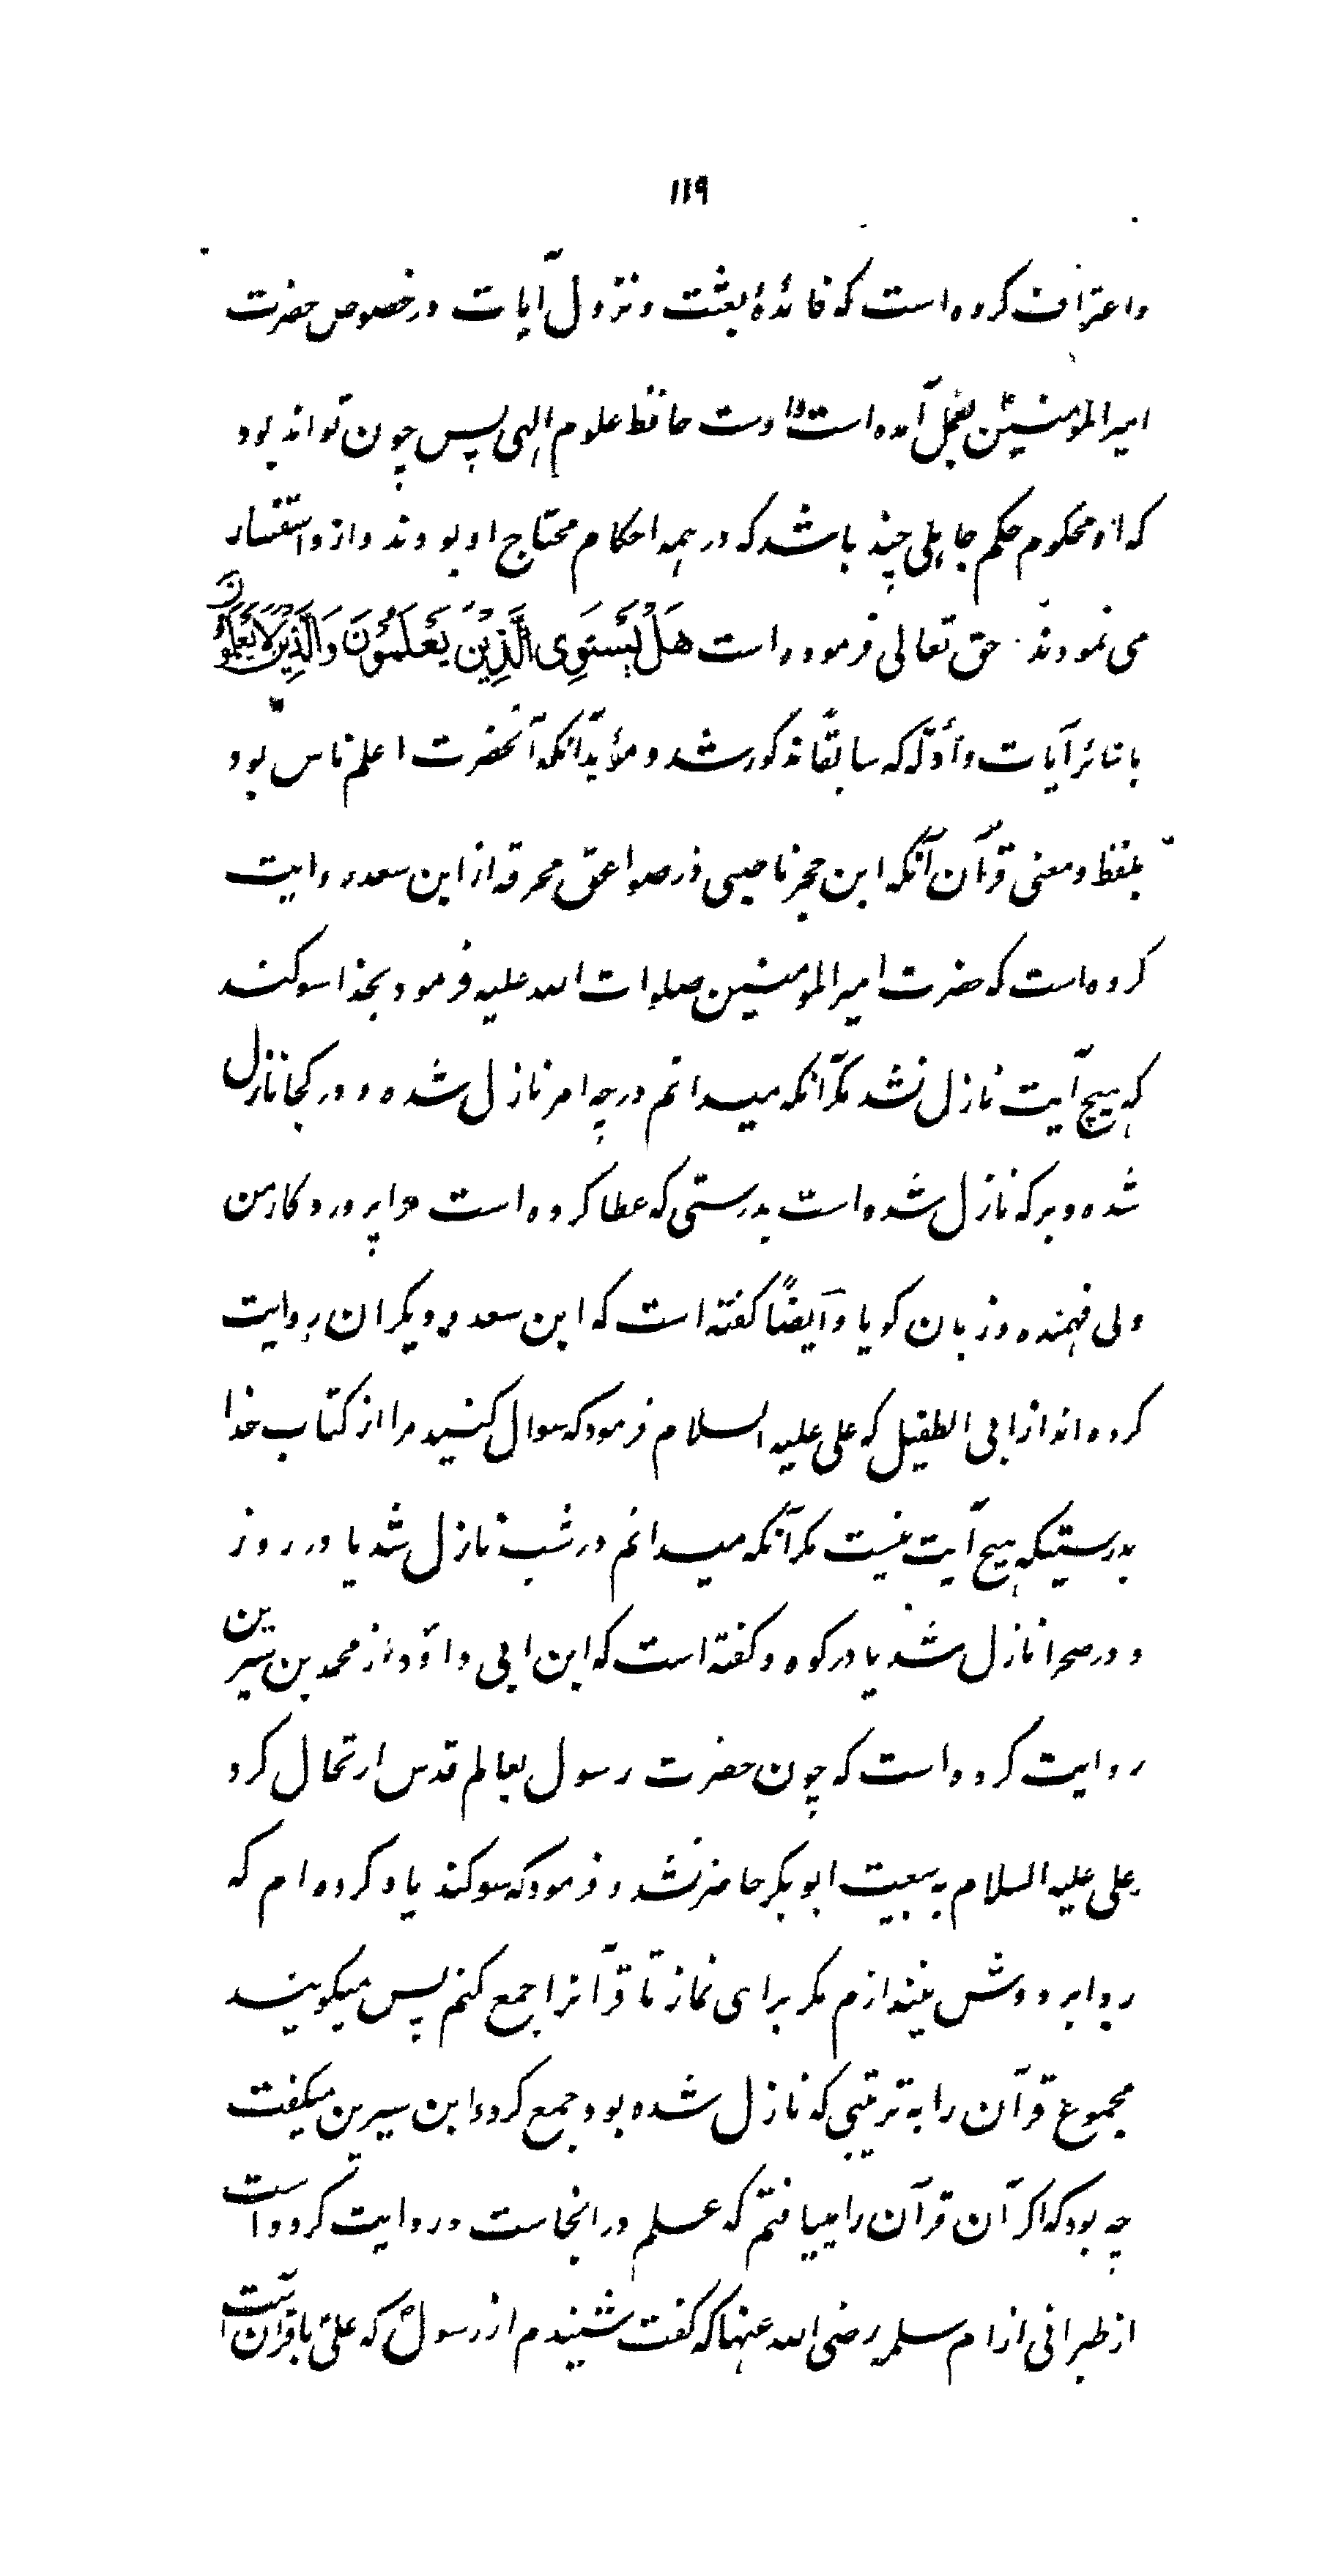 ۱۱۹
واعتراف کرده است که فائدهٔ بعثت و نزول آیات در خصوص حضرت
امیرالمؤمنین بفعل آمده است و اوست حافظ علوم الهی پس چون تواند بود
که او محکوم حکم جاهلی چند باشد که در همه احکام محتاج او بودند و از و استفسار
می نمودند حق تعالی فرموده است هَلْ یَسْتَوِی الَّذِیْنَ یَعْلَمُوْنَ وَالَّذِیْنَ لَا یَعْلَمُوْنَ
با سائر آیات و أدلّه که سابقًا مذکور شد و مؤید آنکه آنحضرت اعلم ناس بود
بلفظ و معنی قرآن آنکه ابن حجر ناصبی در صواعق محرقه از ابن سعد روایت
کرده است که حضرت امیرالمؤمنین صلوات الله علیه فرمود بخدا سوکند
که هیچ آیت نازل نشد مکر آنکه میدانم در چه امر نازل شده و در کجا نازل
شده و بر که نازل شده است بدرستی که عطا کرده است مرا پروردکار من
دلی فهمنده و زبان کویا و أیضًا کفته است که ابن سعد و دیکران روایت
کرده اند از ابی الطفیل که علی علیه السلام فرمود که سوال کنید مرا از کتاب خدا
بدرستیکه هیچ آیت نیست مکر آنکه میدانم در شب نازل شد یا در روز
و در صحرا نازل شد یا در کوه و کفته است که ابن ابی داؤد از محمد بن سیرین
روایت کرده است که چون حضرت رسول بعالم قدس ارتحال کرد
علی علیه السلام به بیعت ابوبکر حاضر نشد و فرمود که سوکند یاد کرده ام که
ردا بر دوش نیندازم مکر برای نماز تا قرآنرا جمع کنم پس میکویند
مجموع قرآن را به ترتیبی که نازل شده بود جمع کرد و ابن سیرین میکفت
چه بود که اکر آن قرآن را مییافتم که علم در انجاست و روایت کرده است
از طبرانی از ام سلمه رضی الله عنها که کفت شنیدم از رسولؐ که علیؑ با قرآن است